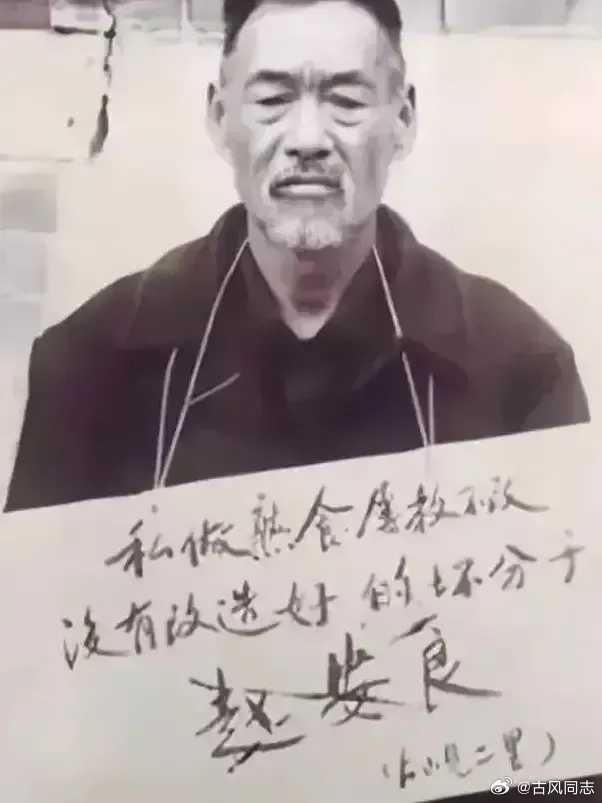 私做熟食屡教不改
没有改造好的坏分子
赵安良
二里)
@古风同志